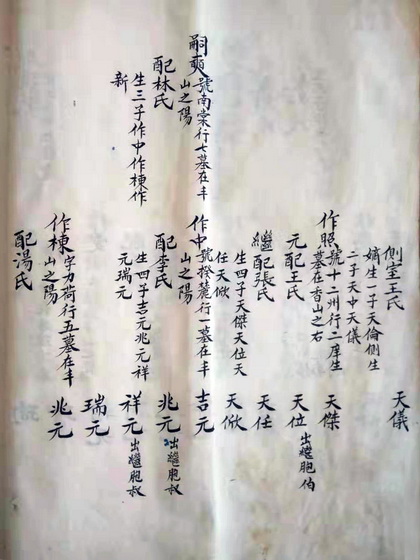 側室王氏
嫡生一子天倫側生
二子天中天儀
天儀
作照號十二州行二庠生
墓在香山之右
天傑
元配王氏
天位出繼胞伯
繼配張氏
天任
生四子天傑天位天
任天俽
天俽
嗣奭號南棠行七墓在丰
山之陽
作中號揆麓行一墓在丰
山之陽
吉元
配林氏
配李氏
兆元出繼胞叔
生三子作中作棟作
新
生四子吉元兆元祥
元瑞元
祥元出繼胞叔
瑞元
作棟字力荷行五墓在丰
山之陽
兆元
配湯氏